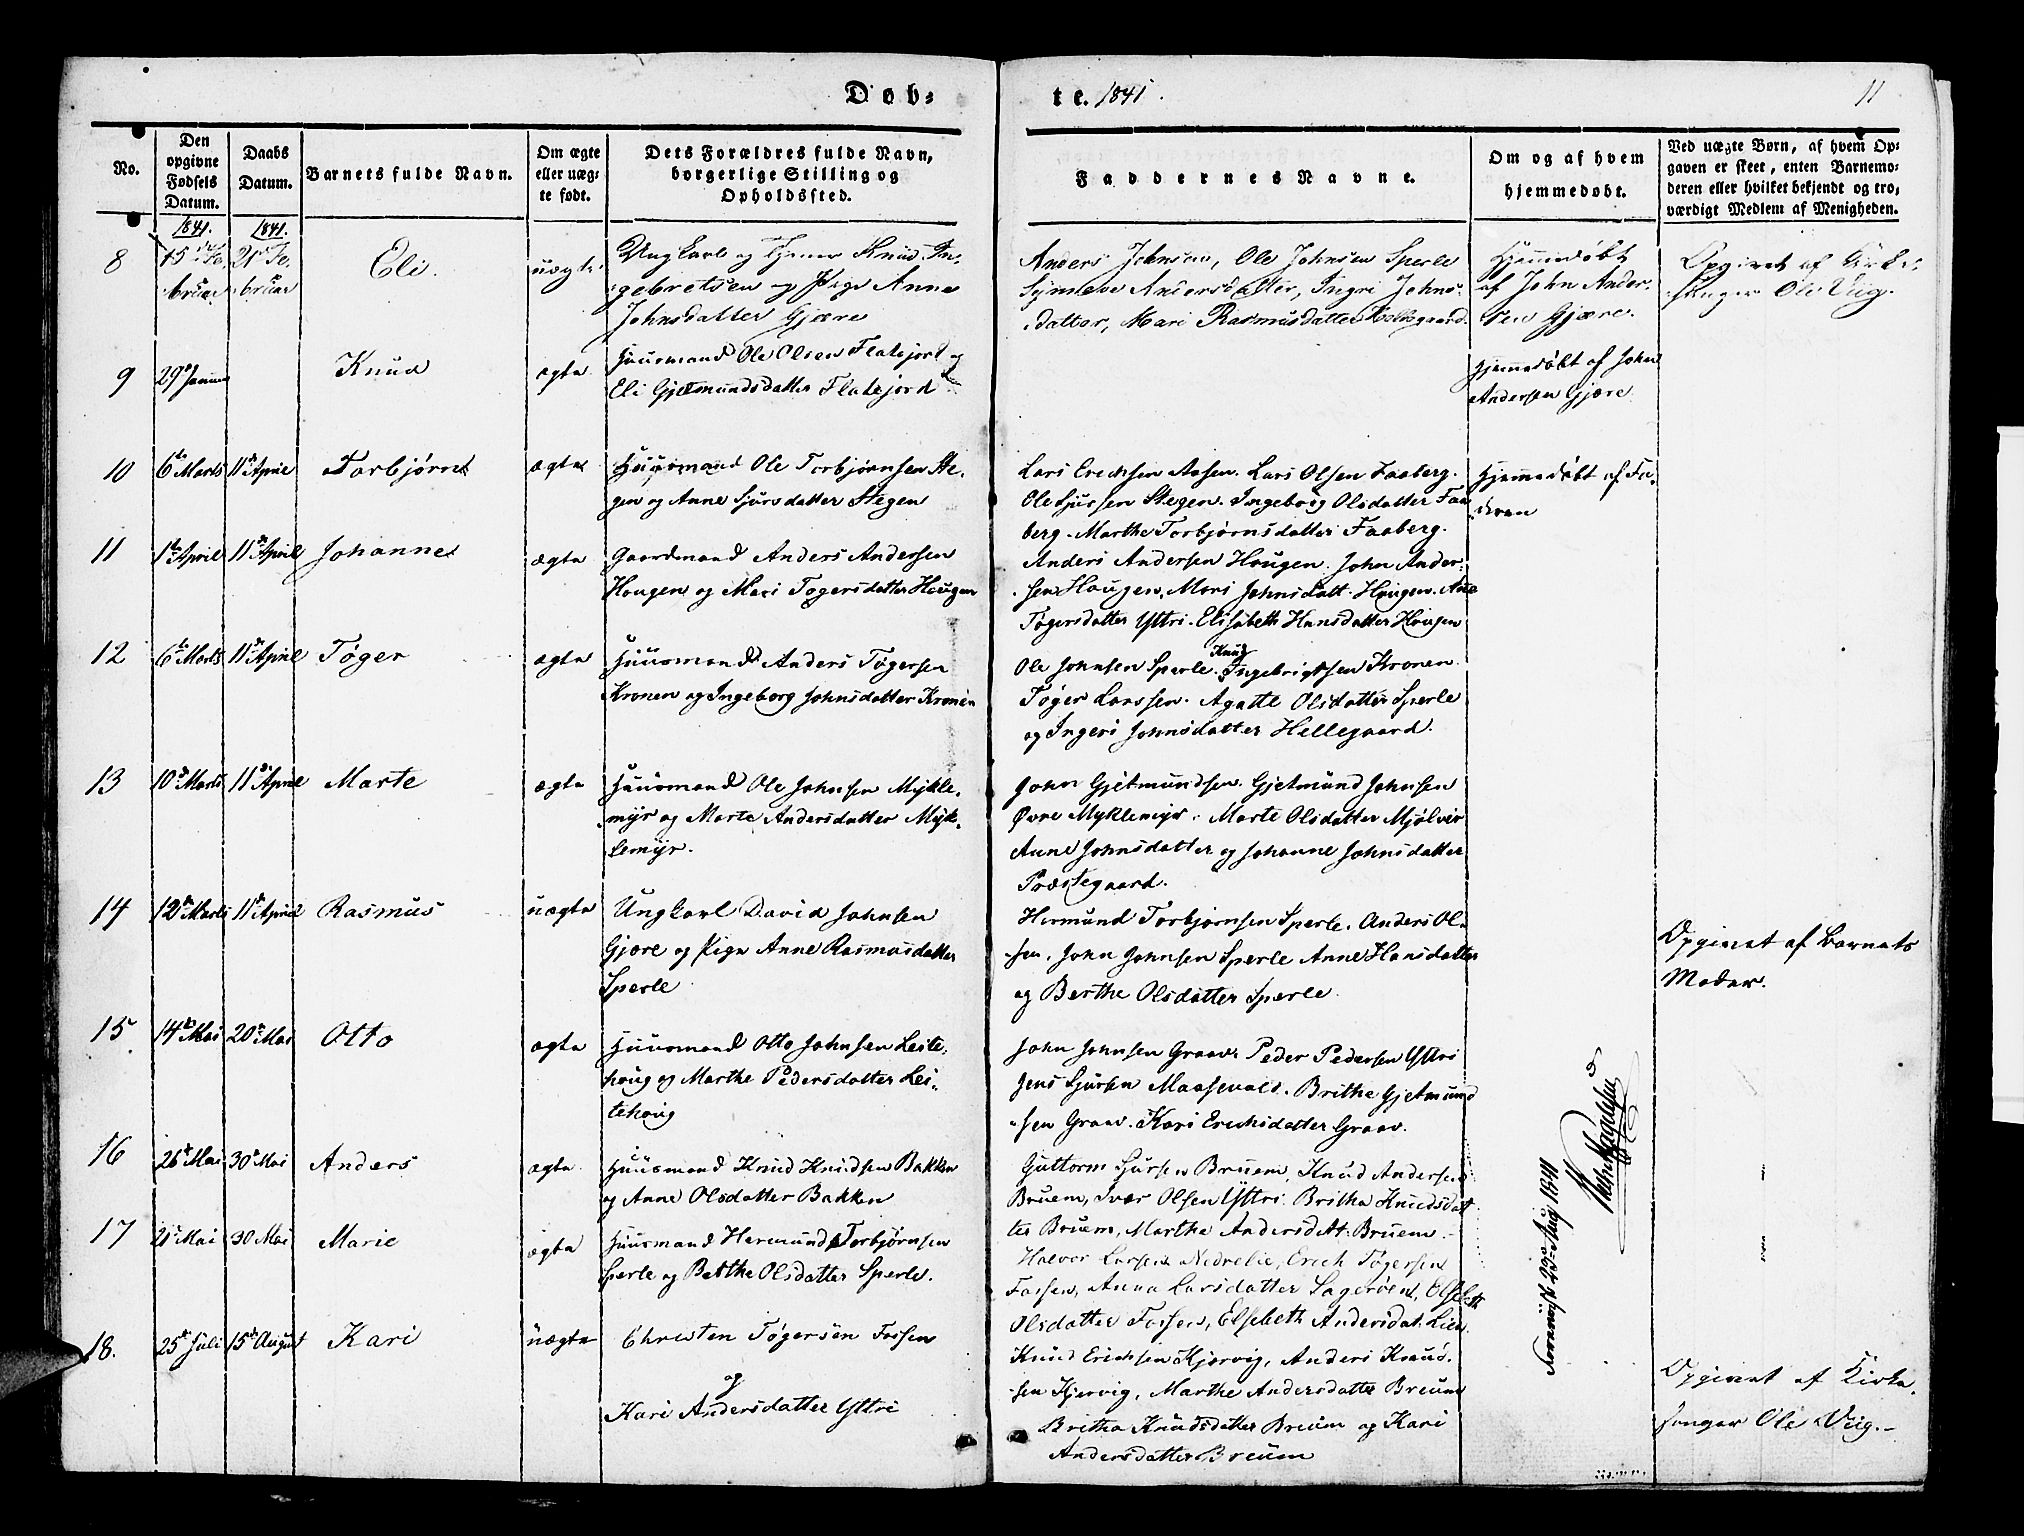 Døb=
te. 1841.
11
No.
Den opgivne Fødsels Datum.
Daabs Datum.
Barnets fulde Navn.
Om ægte eller uægte født.
Dets Forældres fulde Navn, borgerlige Stilling og Opholdssted.
Faddernes Navne.
Om og af hvem hjemmedøbt.
Ved uægte Børn, af hvem Opgaven er skeet, enten Barnemoderen eller hvilket bekjendt og troværdigt Medlem af Menigheden.
1841.
1841.
8
15de Fe-
bruar
21de Fe-
bruar
Eli.
uægte
Ungkarl og Knud In-
gebretsen og Pige Anne
Johnsdatter Gjære
Anders Johnsen, Ole Johnsen Sperle
Synneve Andersdatter, Ingri Johns-
datter, Mari Rasmusdatter
Hjemmedøbt
af John Ander-
sen Gjære.
Opgivet af Kirke-
sanger Ole Viig.
9
29de Januar
Knud
ægte
Huusmand Ole Olsen Flatejord og
Eli Gjetmundsdatter Flatejord
Hjemmedøbt af John
Andersen Gjære
10
6te Marts
11te April
Torbjørn
ægte
Huusmand Ole Torbjørnsen Ste-
gen og Anne Sjursdatter Stegen
Lars Erichsen Aasen. Lars Olsen Faaberg.
Ole Sjursen Stegen. Ingeborg Olsdatter Faa-
berg. Marthe Torbjørnsdatter Faaberg.
Hjemmedøbt af Fa-
deren
11
1te April
11te April
Johanne
ægte
Gaardmand Anders Andersen
Hougen og Mari Tøgersdatter Hougen
Anders Andersen Hougen. John Ander-
sen Hougen, Mari Johnsdatt. Hougen. Ane
Tøgersdatter Yttri. Elisabeth Hansdatter Hougen
12
6te Marts
11te April
Tøger
ægte
Huusmand Anders Tøgersen
Kronen og Ingeborg Johnsdatter Kronen
Ole Johnsen Sperle. Knud Ingebrigtsen Kronen.
Tøger Larssen. Agatte Olsdatter Sperle
og Ingeri Johnsdatter Hellegaard.
13
10de Marts
11te April
Marte
ægte
Huusmand Ole Johnsen Mykle-
myr og Marte Andersdatter Myk-
lemyr.
John Gjetmundsen. Gjetmund Johnsen
Øvre Myklemyr. Marte Olsdatter Mjølvir
Anne Johnsdatter og Johanne Johnsdatter
Præstegaard.
14
12te Marts
11te April
Rasmus
uægte
Ungkarl David Johnsen
Gjære og Pige Anne Rasmusdatter
Sperle
Hermund Torbjørnsen Sperle. Anders Ol-
sen. John Johnsen Sperle Anne Hansdatter
og Berthe Olsdatter Sperle.
Opgivet af Barnets
Moder.
15
14de Mai
20de Mai
Otto
ægte
Huusmand Otto Johnsen Leite-
houg og Marthe Pedersdatter Lei-
tehoug
John Johnsen Graav. Peder Pedersen Yttri
Jens Sjursen Maasevald. Brithe Gjetmund
sen Graav. Kari Erichsdatter Graav.
16
26de Mai
30te Mai
Anders
ægte
Huusmand Knud Knudsen Bakken
og Anne Olsdatter Bakken
Guttorm Sjursen Bruem, Knud Andersen
Bruem, Iver Olsen Yttri. Britha Knudsdat-
ter Bruem, Marthe Andersdatt. Bruem.
17
21de Mai
30 Mai
Marie
ægte
Huusmand Hermund Torbjørnsen
Sperle og Berthe Olsdatter Sperle.
Halvor Larsen Nedrelie, Erich Tøgersen
Fossen, Anna Larsdatter Sagerøen, Elsebeth
Olsdatter Fossen, Elsebeth Andersdat. Lien.
18.
25de Juli
15de August
Kari
uægte
Christen Tøgersen Fossen
og
Kari Andersdatter Yttri
Knud Erichsen Kjervig, Anders Knud-
sen Kjervig, Marthe Andersdatter Bruem
Britha Knudsdatter Bruem og Kari
Andersdatter Bruem
Opgivet af Kirke-
sanger Ole Viig.
Foreviist 23de Aug 1841